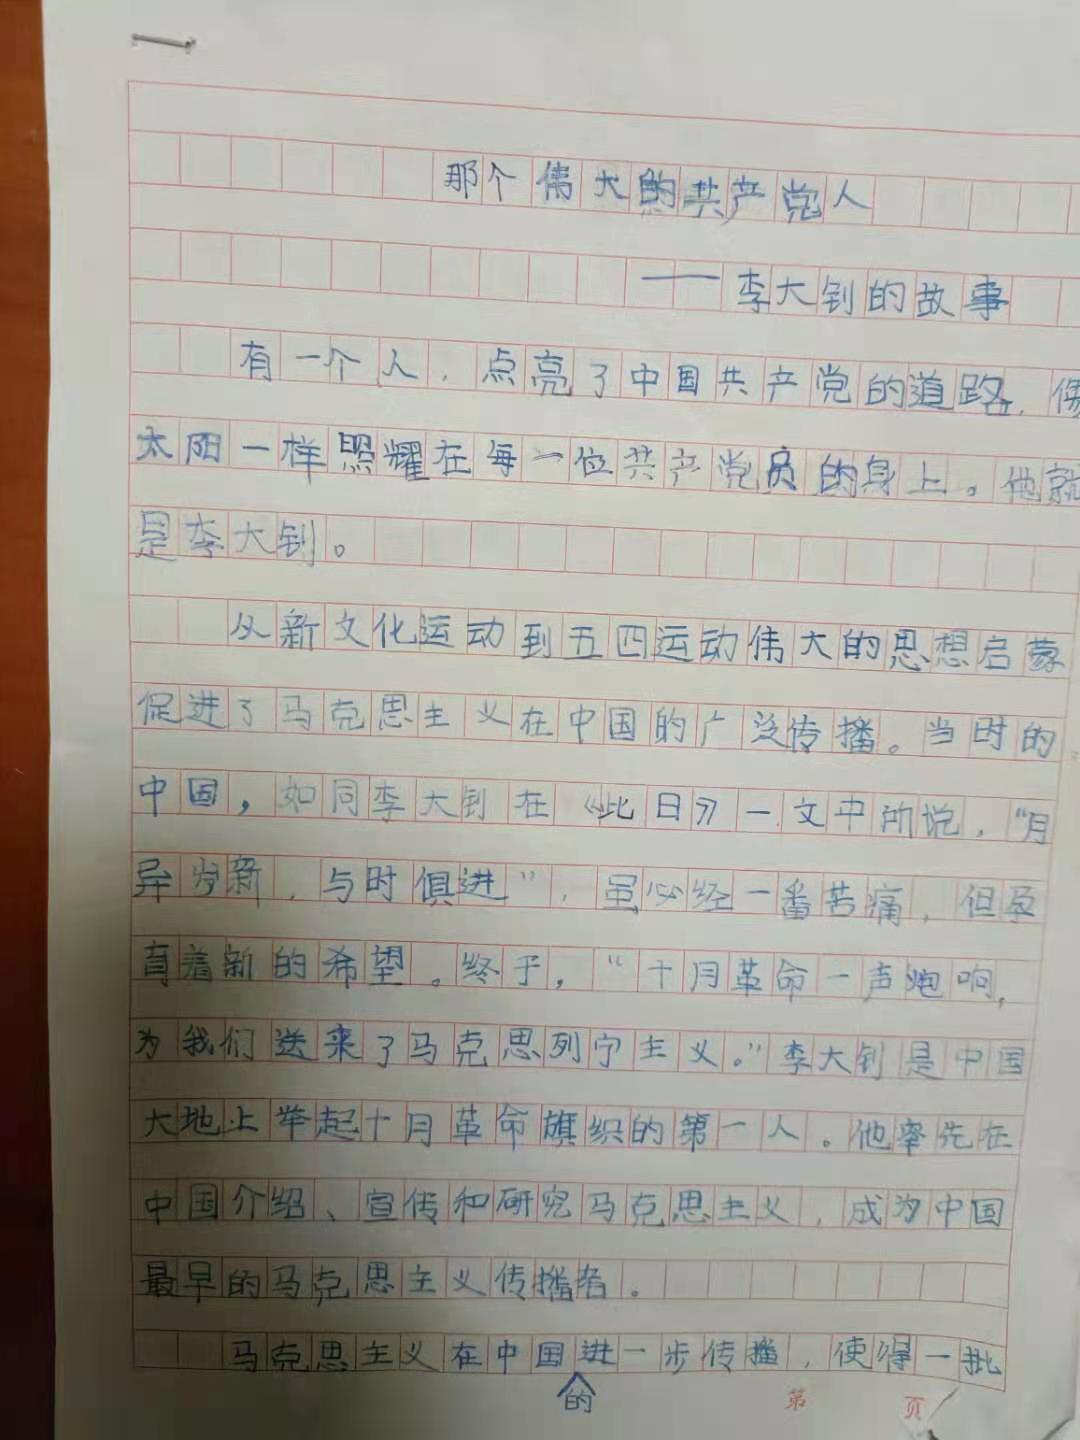 那个伟大的共产党人
——李大钊的故事
有一个人，点亮了中国共产党的道路，像
太阳一样照耀在每一位共产党员的身上。他就
是李大钊。
从新文化运动到五四运动伟大的思想启蒙
促进了马克思主义在中国的广泛传播。当时的
中国，如同李大钊在《此日》一文中所说，“月
异岁新，与时俱进”，虽必经一番苦痛，但孕
育着新的希望。终于，“十月革命一声炮响，
为我们送来了马克思列宁主义。”李大钊是中国
大地上举起十月革命旗织的第一人。他率先在
中国介绍、宣传和研究马克思主义，成为中国
最早的马克思主义传播者。
马克思主义在中国进一步传播，使得一批
的
第 页